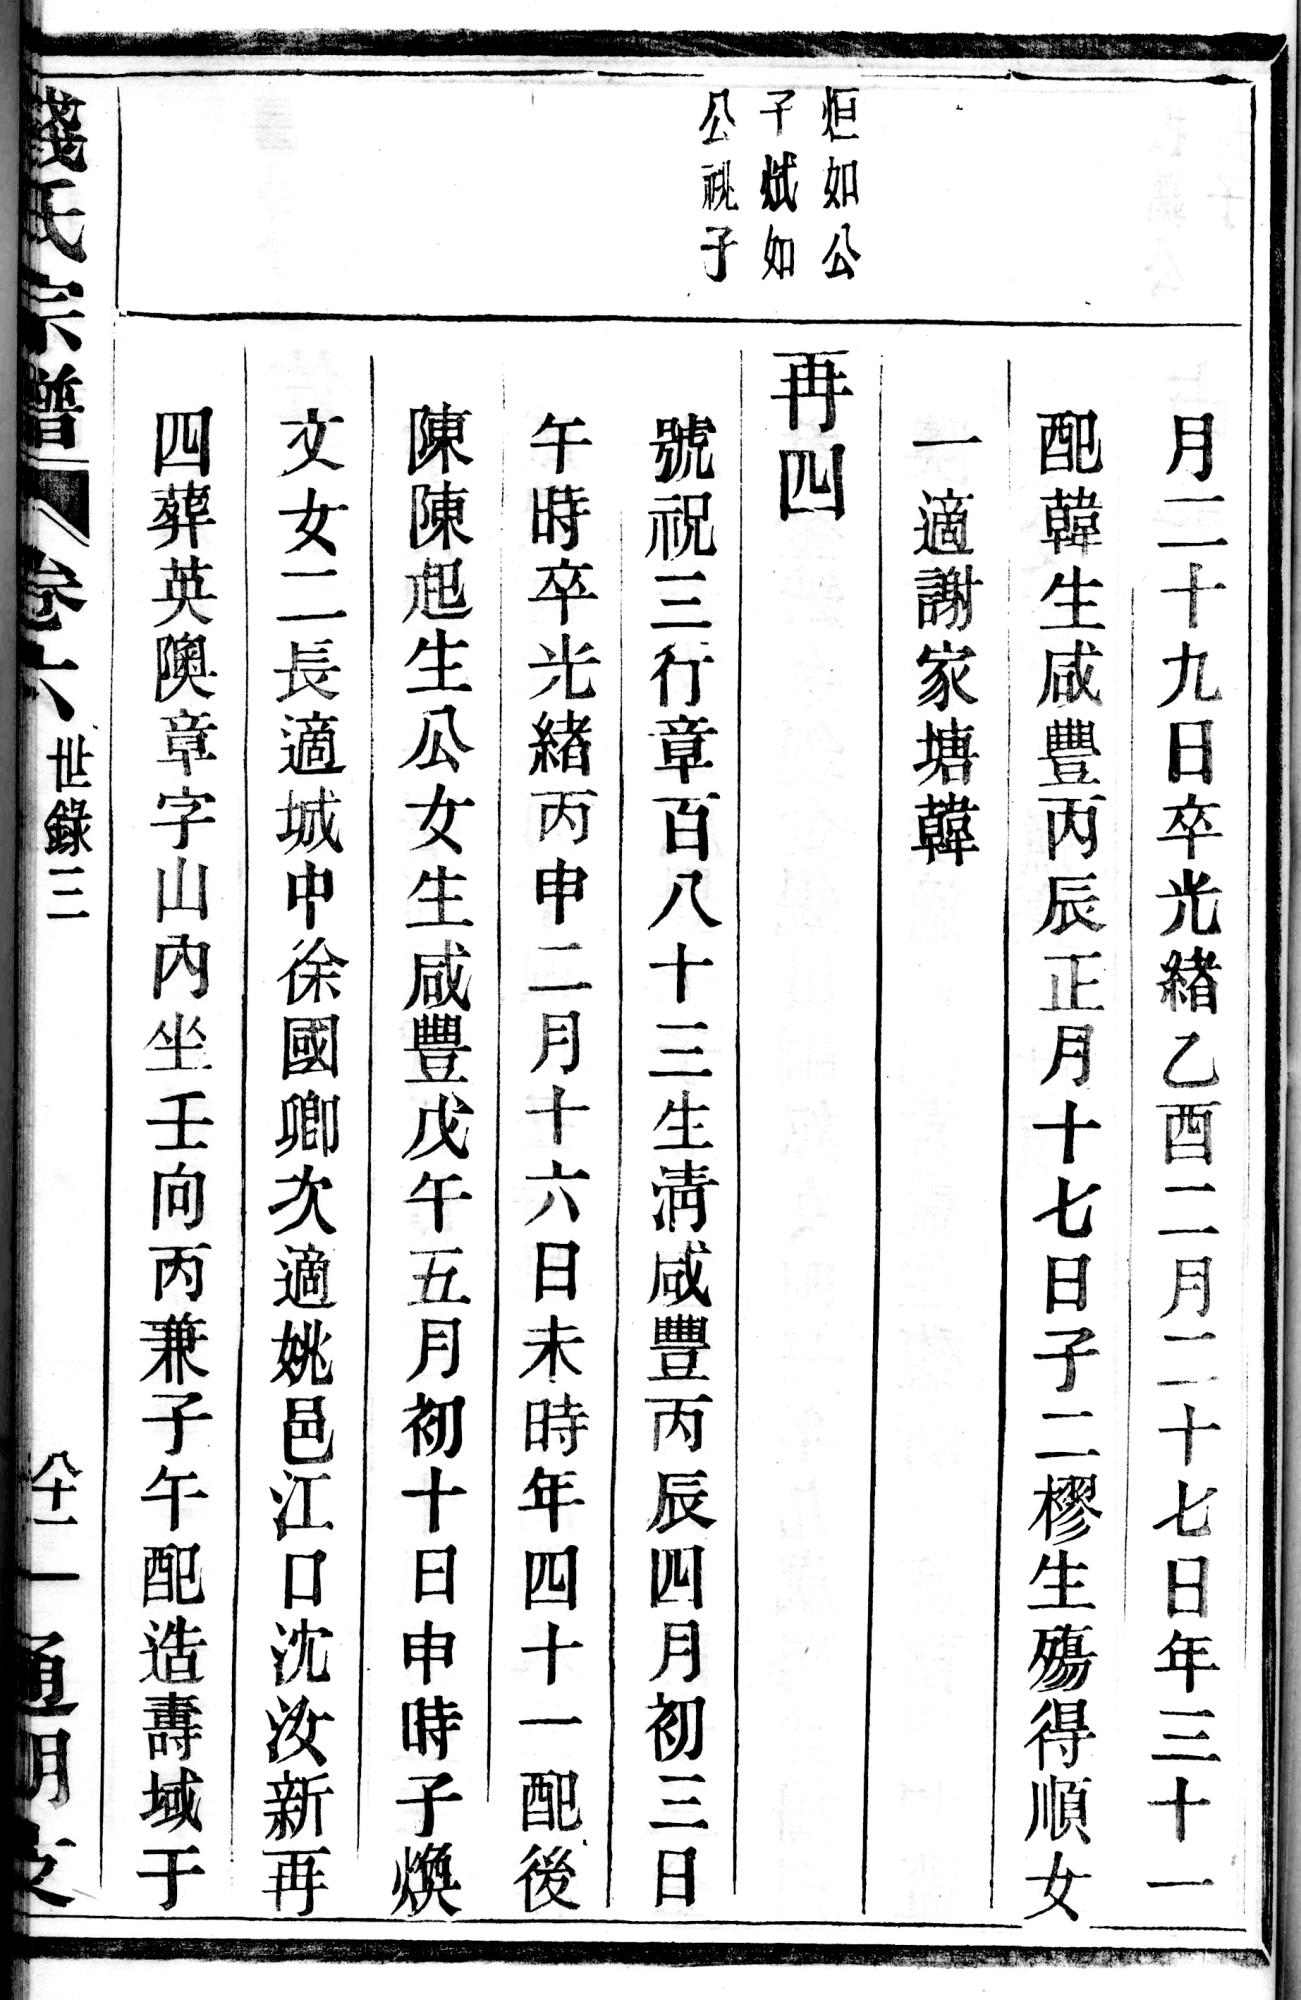 炬如公
子斌如
公祧子
月二十九日卒光緒乙酉二月二十七日年三十一
配韓生咸豐丙辰正月十七日子二樛生殤得順女
一適謝家塘韓
再四
號祝三行章百八十三生淸咸豐丙辰四月初三日
午時卒光緒丙申二月十六日未時年四十一配後
陳陳起生公女生咸豐戊午五月初十日申時子煥
文女二長適城中徐國卿次適姚邑江口沈汝新再
四葬英隩章字山內坐壬向丙兼子午配造壽域于
錢氏宗譜
卷六
世錄三
通明支